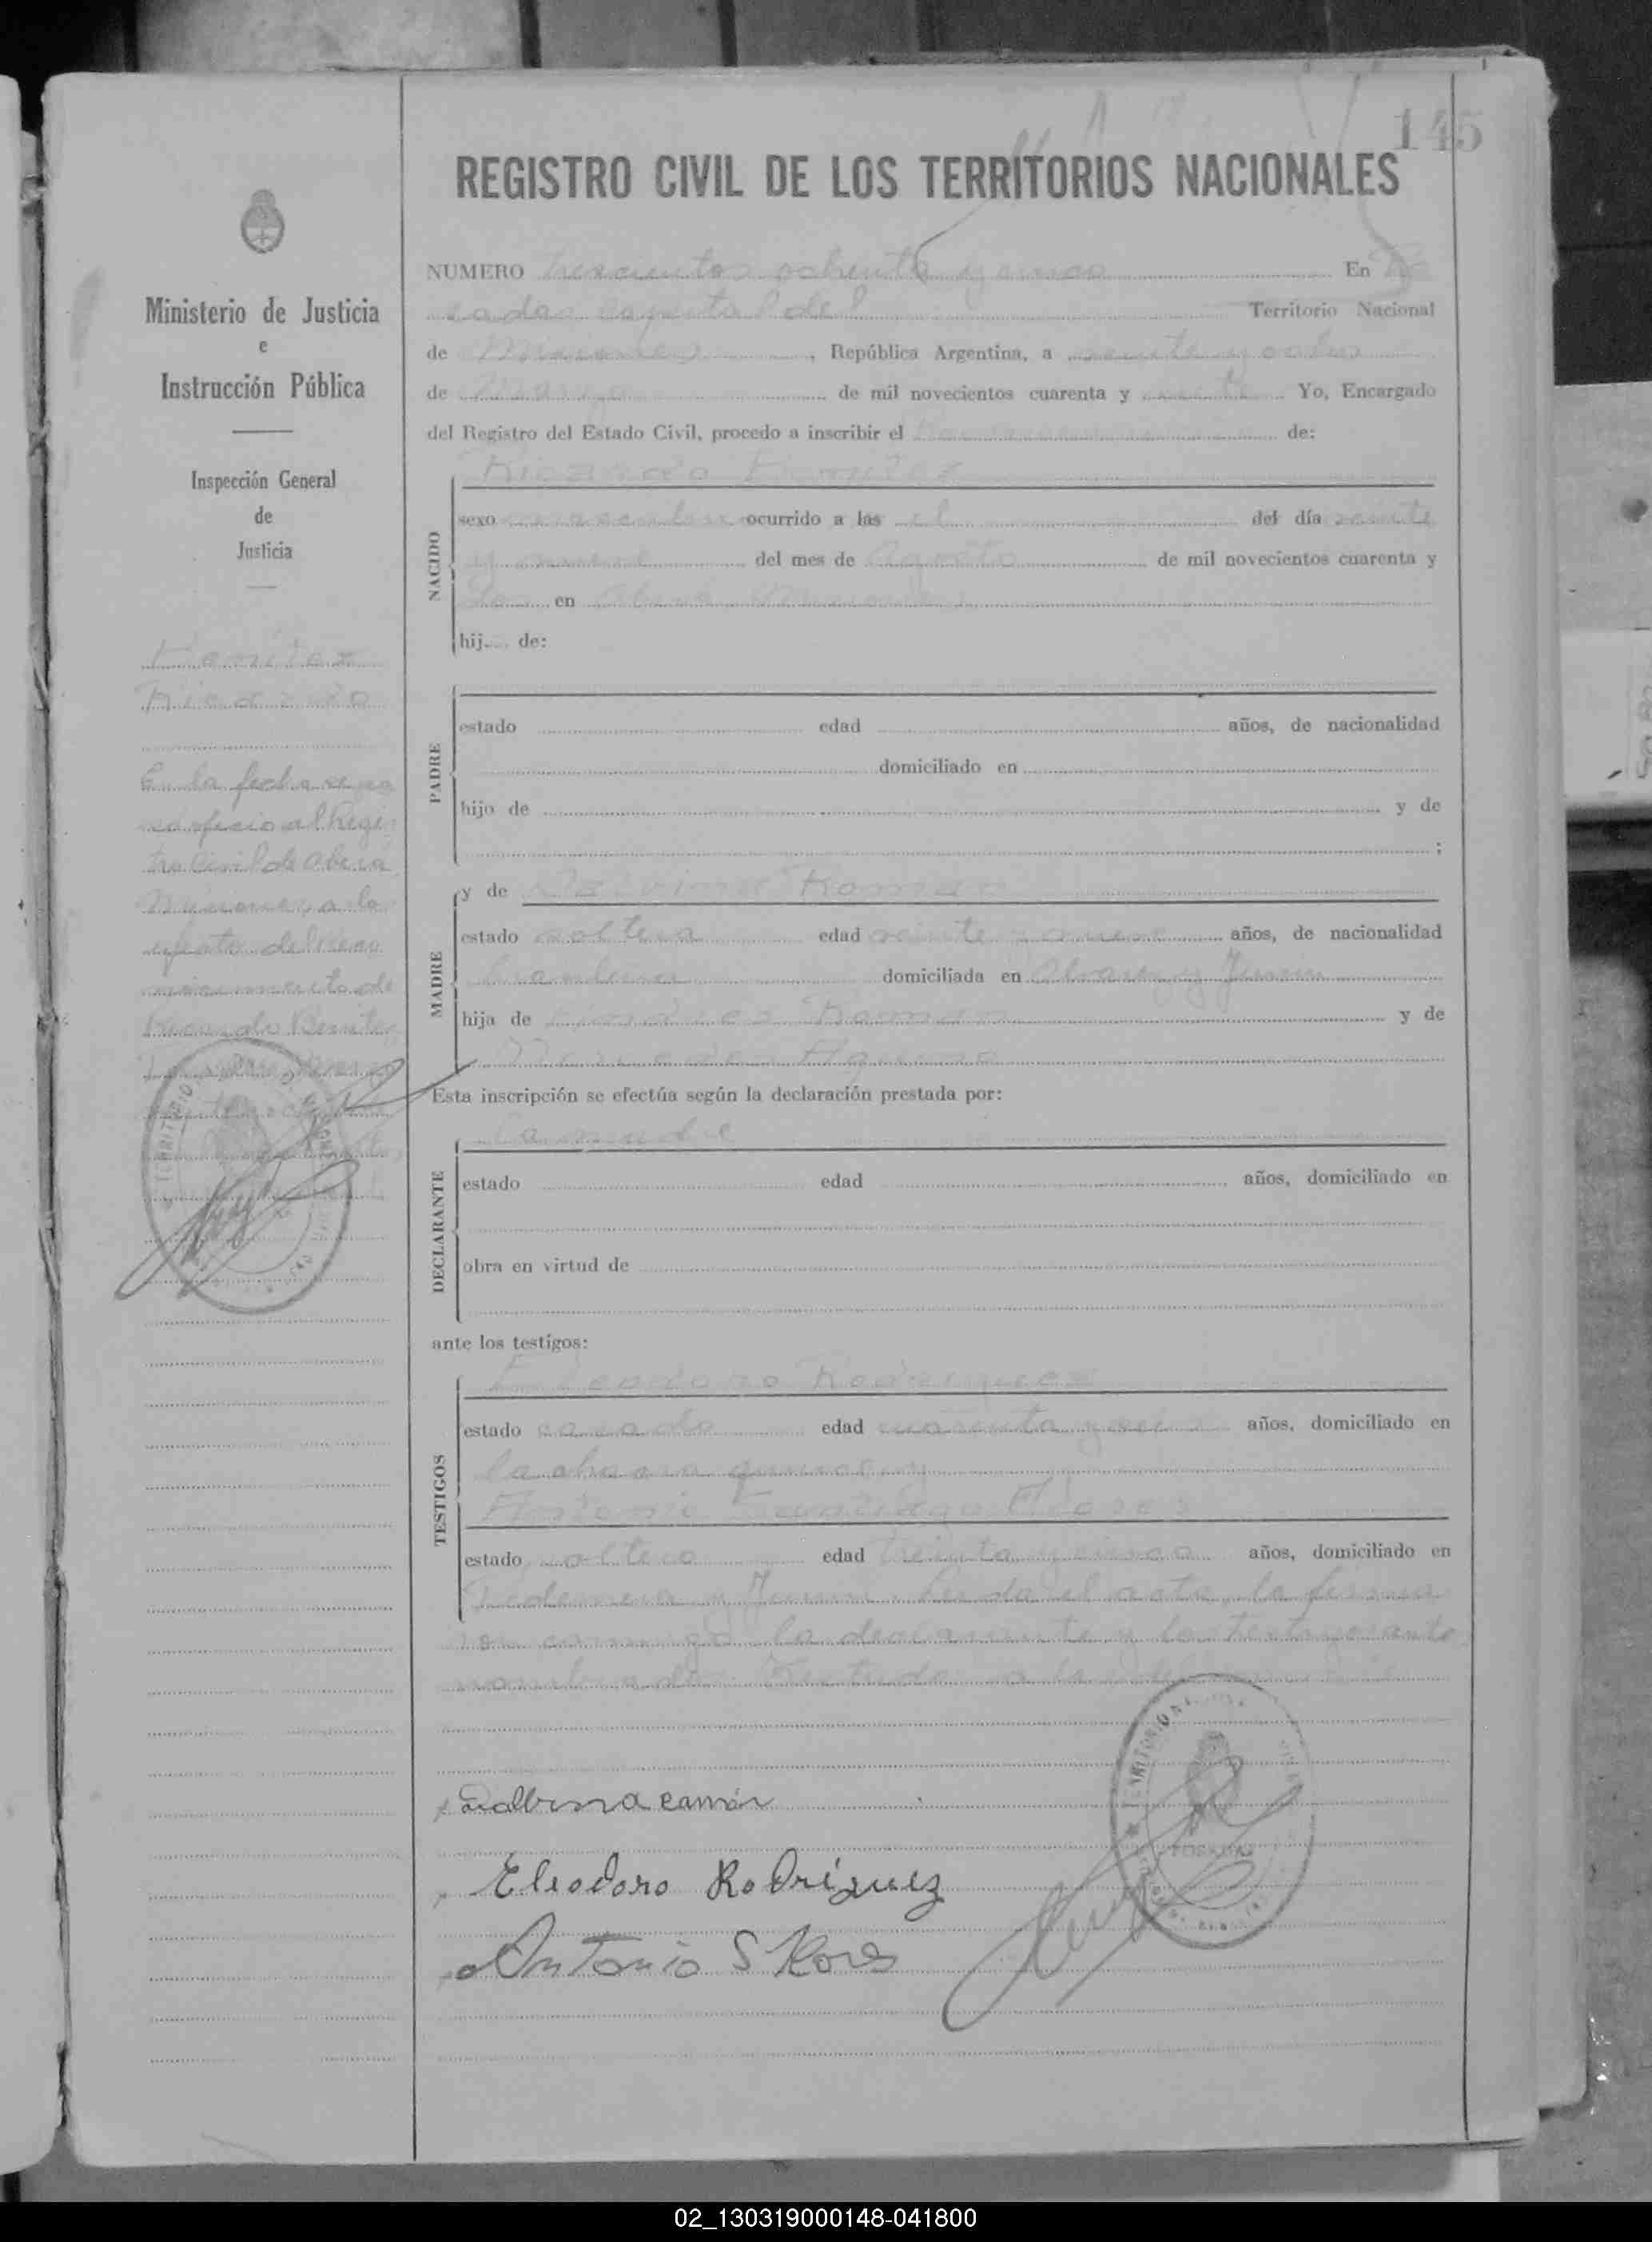 145
REGISTRO CIVIL DE LOS TERRITORIOS NACIONALES
Ministerio de Justicia
e
Instrucción Pública
Inspección General
de
Justicia
Benitez
Ricardo
En la fecha se
oficio al Regis
tro Civil de Oberá
Misiones, a los
efectos del
nacimiento de
Ricardo Benitez
NUMERO Trescientos ochenta y cinco En Po
sadas capital del Territorio Nacional
de Misiones, República Argentina, a veinte y ocho
de Marzo de mil novecientos cuarenta y siete Yo, Encargado
del Registro del Estado Civil, procedo a inscribir el de:
Ricardo Benitez
NACIDO
sexo masculino ocurrido a las el del día veinte
y nueve del mes de Agosto de mil novecientos cuarenta y
dos en Oberá Misiones
hij de:
PADRE
estado edad años, de nacionalidad
domiciliado en
hijo de y de
;
MADRE
y de Roman
estado soltera edad veinte y nueve años, de nacionalidad
domiciliada en y Junin
hija de Roman y de
Mercedes
Esta inscripción se efectúa según la declaración prestada por:
La madre
DECLARANTE
estado edad años, domiciliado en
obra en virtud de
ante los testigos:
TESTIGOS
Eleodoro Rodriguez
estado casado edad cuarenta y seis años, domiciliado en
la chacra quince y
Antonio Santiago
estado soltero edad treinta y cinco años, domiciliado en
y Junin. Leida el acta, la firma
ron conmigo la declarante y los testigos ante
nombrados
Eleodoro Rodríguez
Antonio S
TERRITORIO
POSADAS
02_130319000148-041800